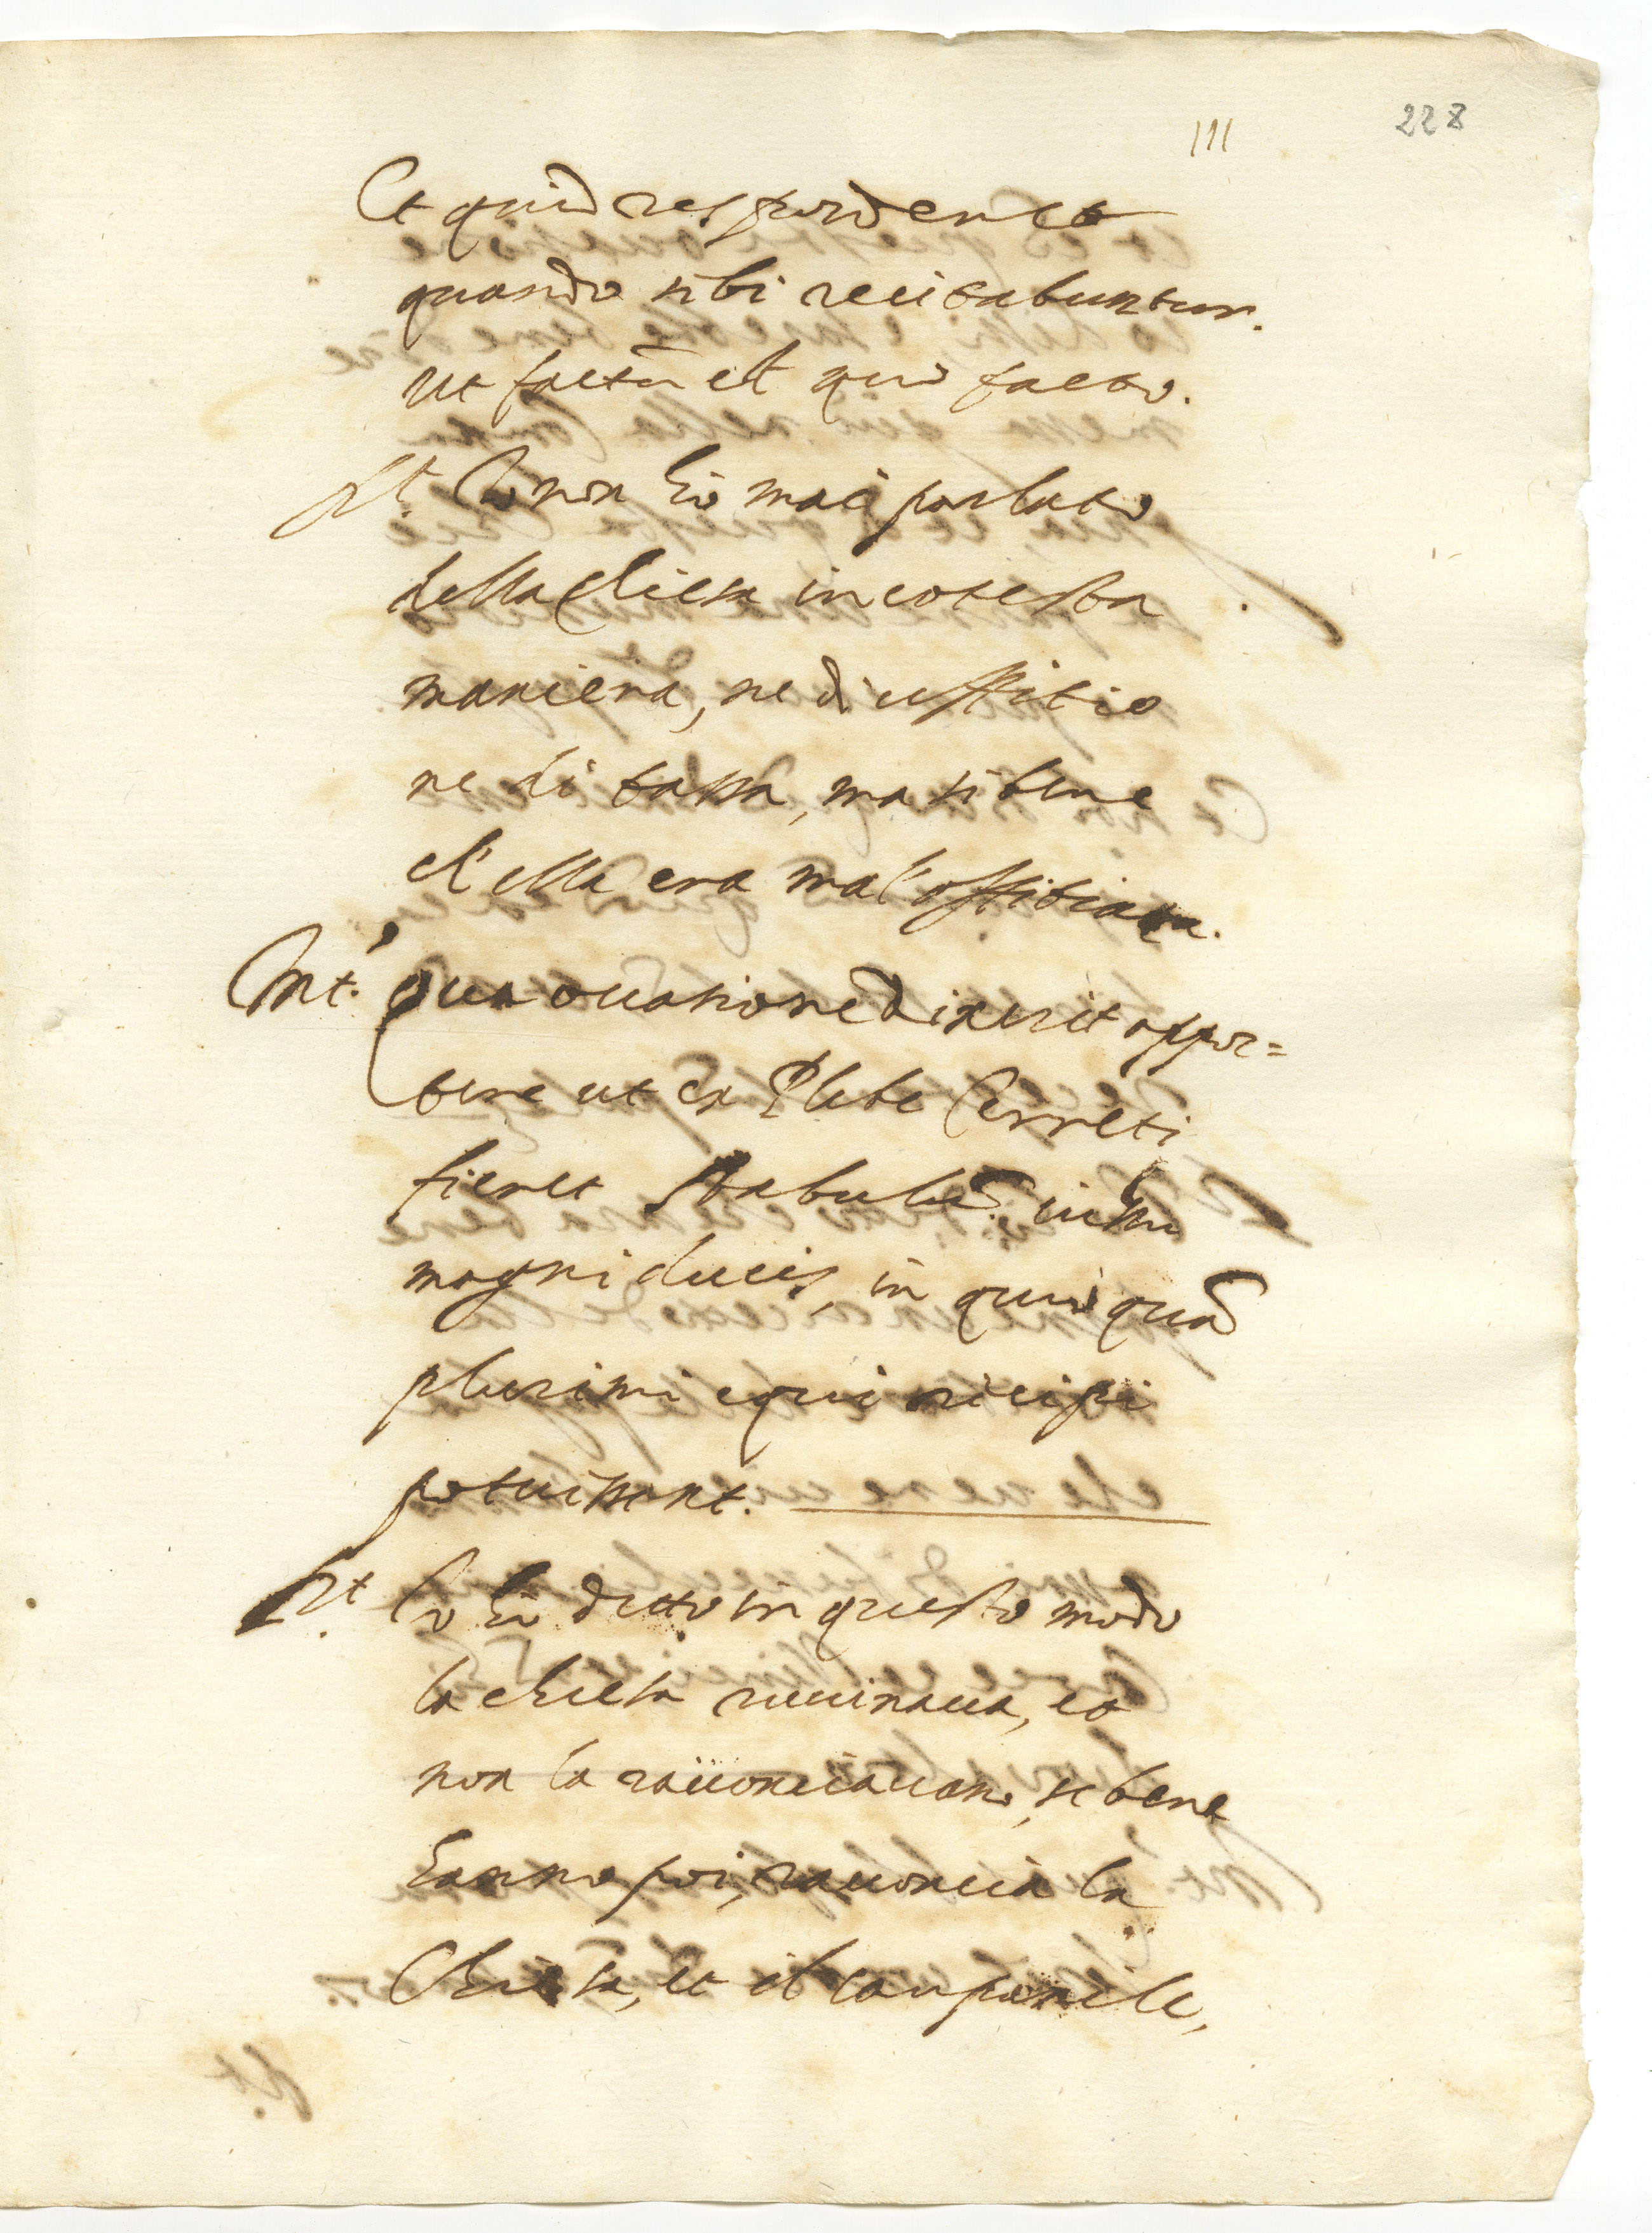 111
228
Et quid responderet
quando sibi recitabuntur.
ut factũ est quo facto.
Rt. Io non hò mai parlato
della Chiesa in cotesta
maniera, ne di uffitio
ne di tassa, ma si bene
ch'ella era mal offitiata.
Int. Qua occasione dixerit oppor=
tere ut ex Plebe Cerreti
fieret stabulũ
magni ducis, in quo quã
plurimi equi recipi
potuissent.
Rt. Io hò detto in questo modo
la chiesa rovinava, et
non la racconciavano, se bene
hanno poi, racconcia la
Chiesa, et il campanile,